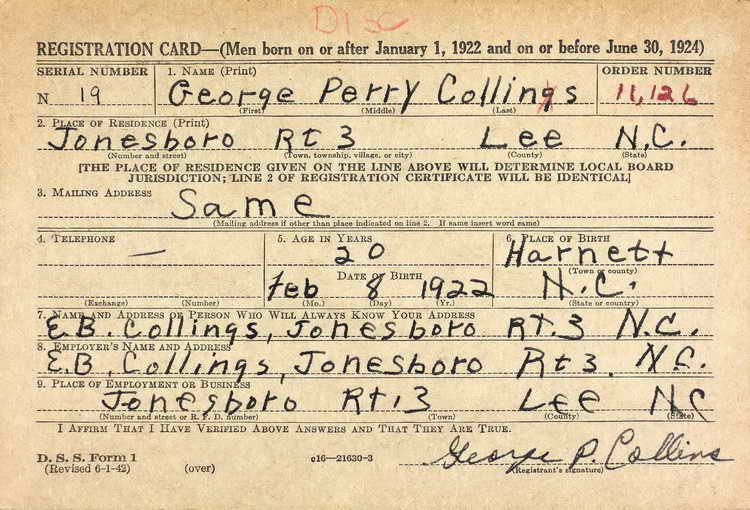 Disc
REGISTRATION CARD—(Men born on or after January 1, 1922 and on or before June 30, 1924)
SERIAL NUMBER 1. NAME (Print) ORDER NUMBER
N 19 George Perry Collings 11,126
(First) (Middle) (Last)
2. PLACE OF RESIDENCE (Print)
Jonesboro Rt 3 Lee N.C.
(Number and street) (Town, township, village, or city) (County) (State)
[THE PLACE OF RESIDENCE GIVEN ON THE LINE ABOVE WILL DETERMINE LOCAL BOARD
JURISDICTION; LINE 2 OF REGISTRATION CERTIFICATE WILL BE IDENTICAL]
3. MAILING ADDRESS
Same
(Mailing address if other than place indicated on line 2. If same insert word same)
4. TELEPHONE 5. AGE IN YEARS 6. PLACE OF BIRTH
— 20 Harnett
(Town or county)
DATE OF BIRTH
Feb 8 1922 N.C.
(Exchange) (Number) (Mo.) (Day) (Yr.) (State or country)
7. NAME AND ADDRESS OF PERSON WHO WILL ALWAYS KNOW YOUR ADDRESS
E.B. Collings, Jonesboro RT.3 N.C.
8. EMPLOYER'S NAME AND ADDRESS
E.B. Collings, Jonesboro Rt 3. N.C.
9. PLACE OF EMPLOYMENT OR BUSINESS
Jonesboro Rt.3 Lee NC
(Number and street or R. F. D. number) (Town) (County) (State)
I AFFIRM THAT I HAVE VERIFIED ABOVE ANSWERS AND THAT THEY ARE TRUE.
D. S. S. Form 1
(Revised 6-1-42) (over) c16—21630-3 George P. Collins
(Registrant's signature)